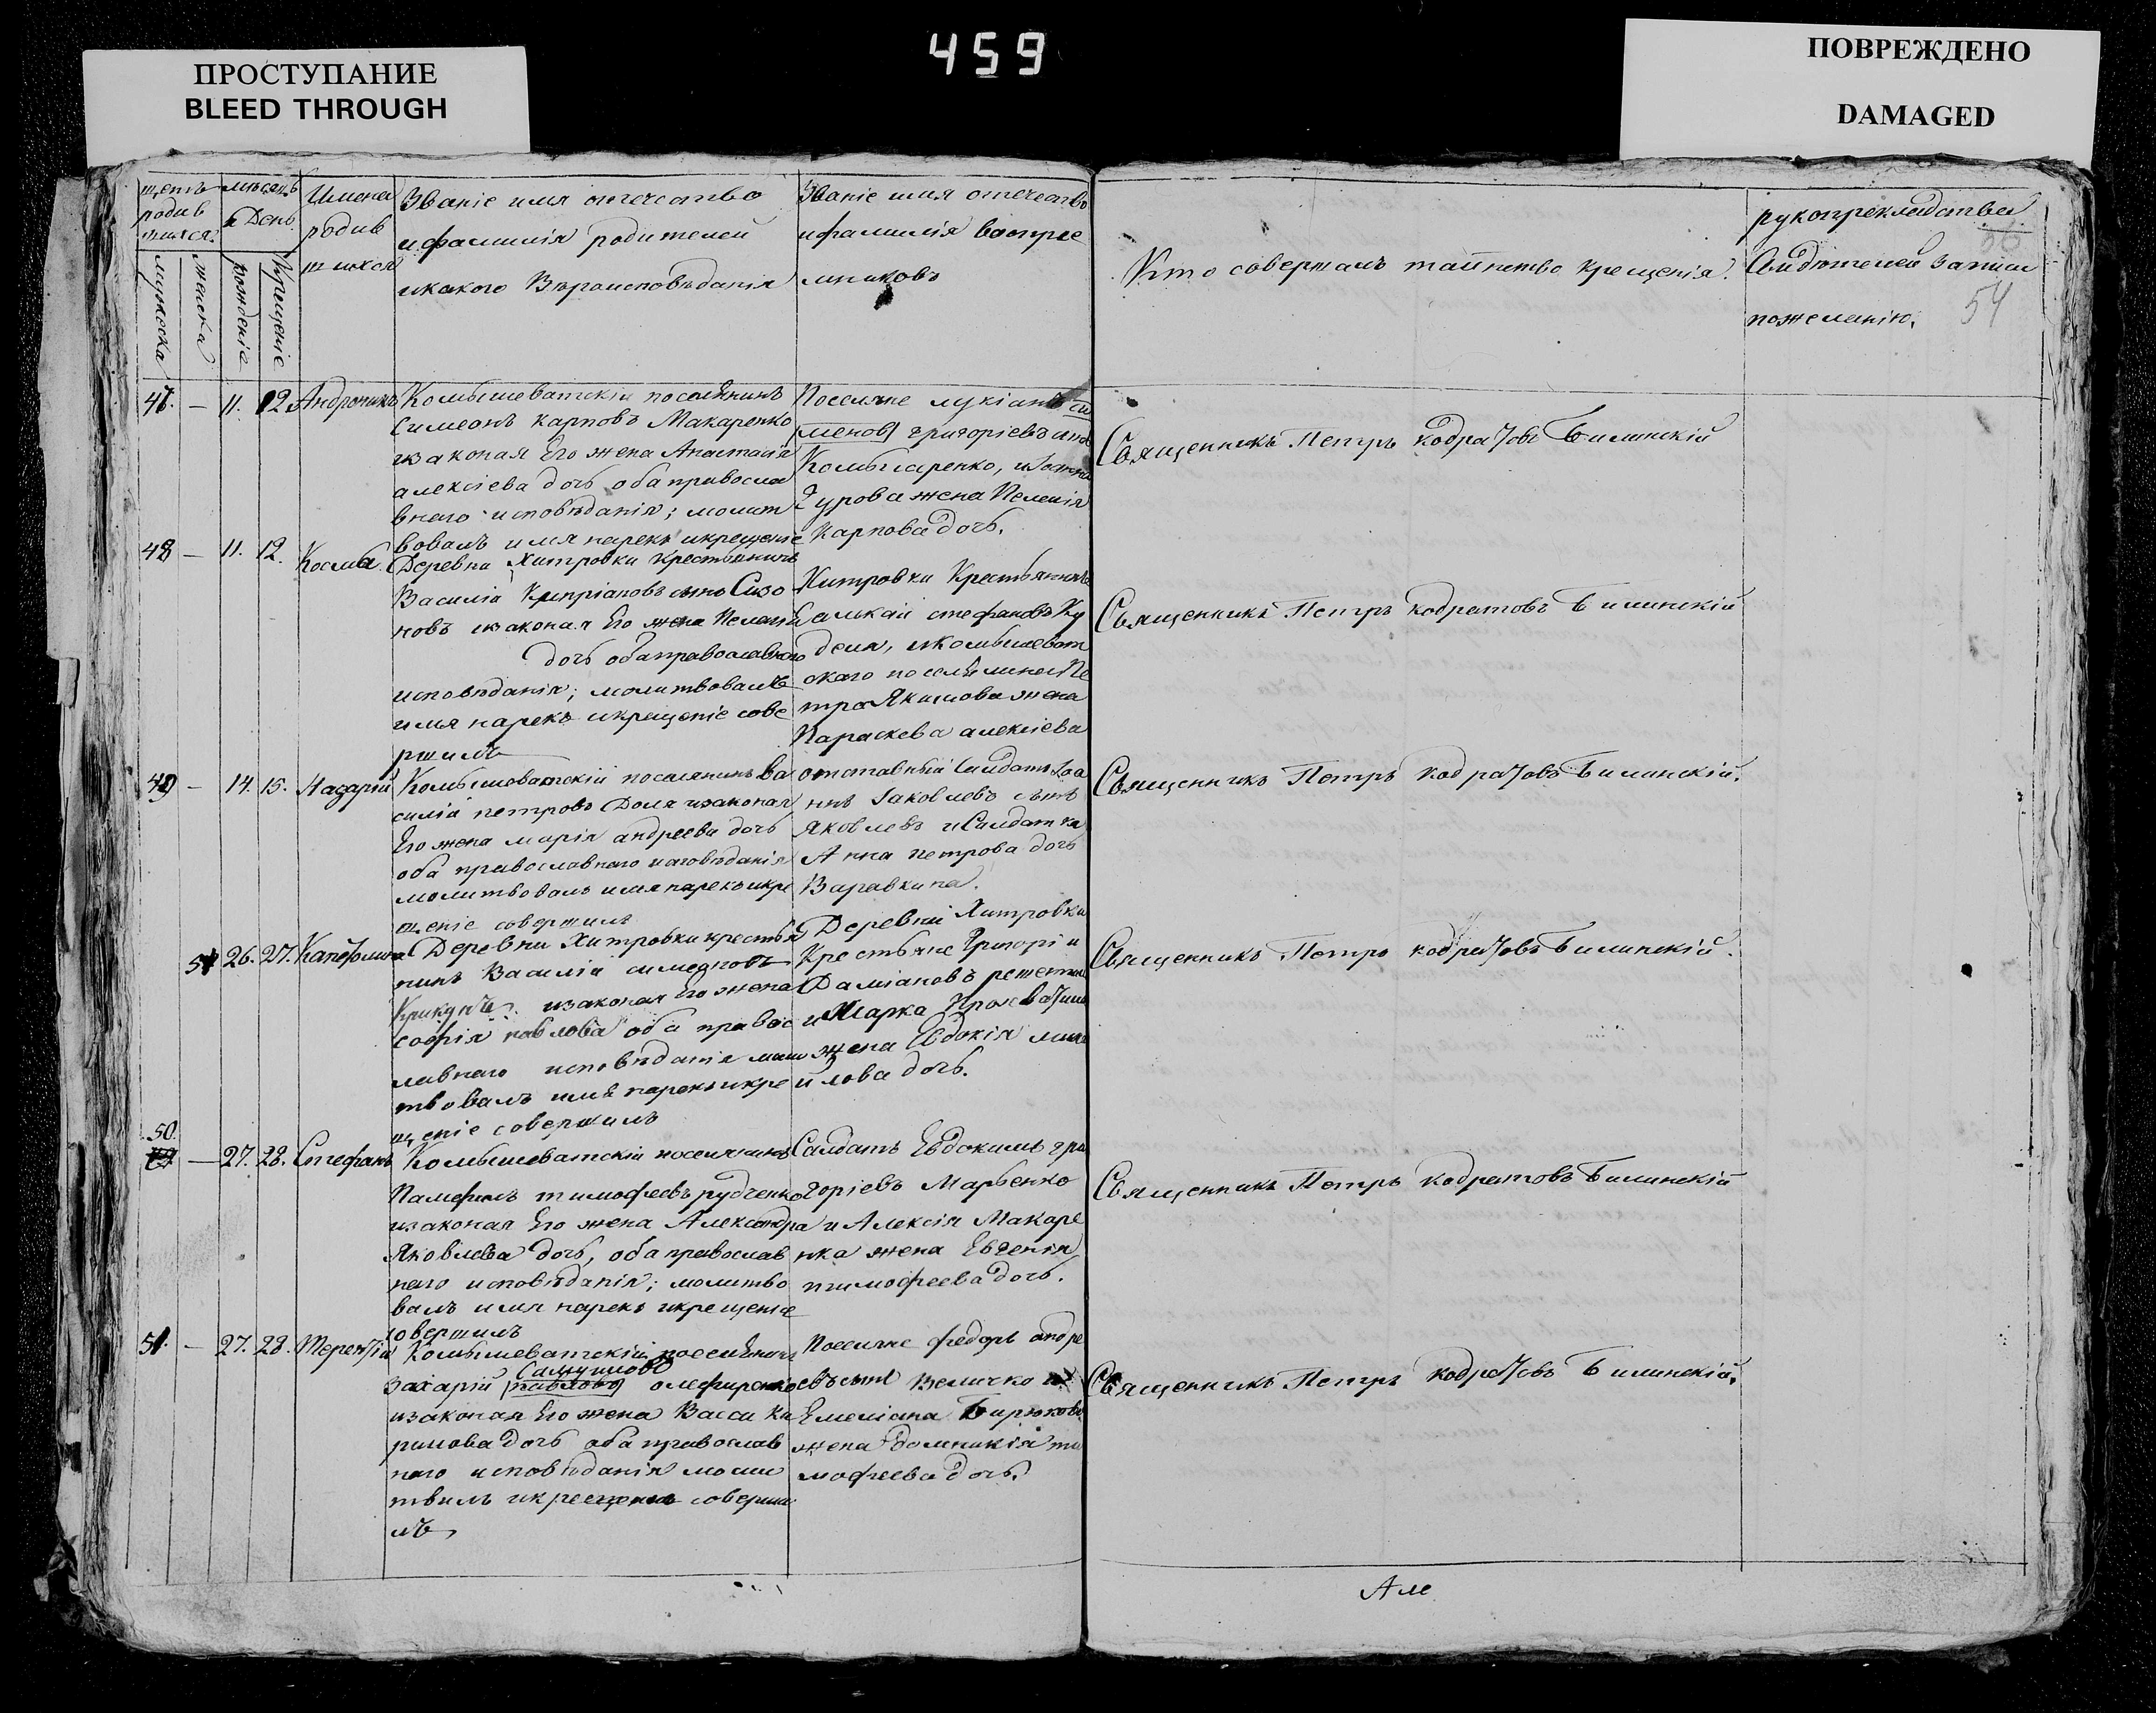 459
ПРОСТУПАНИЕ
BLEED THROUGH
ПОВРЕЖДЕНО
DAMAGED
щетъ родив шихся
мужеска
женска
мѣсяцъ и День
рожденіе
Крещеніе
Имена родив шихся
Званіе имя отечество
и фамилія родителей
и какого Вѣроисповѣданія
Званіе имя отечество
и фамилія воспрее
мниковъ
Кто совершалъ таинство крещенія.
рукоприкладства
Свидѣтелей записи
пожеланію.
54
47. — 11. 12. Андроникъ
Комышеватскій поселянинъ
Симеонъ Карповъ Макаренко
изаконая Его жена Анастасія
алексіева дочь оба правосла
внаго исповѣданія; молит
вовалъ имя нарекъ икрещеніе
Поселяне лукіанъ
григоріевъ
Карпова дочь.
Священникъ Петръ кодратовъ Билинскій
48 — 11. 12. Косма.
Деревни Хитровки Крестьянинъ
Василій Кипріановъ сынъ Сизо
новъ изаконая Его жена Пелагія
дочь оба православнаго
исповѣданія; молитвовалъ
имя нарекъ икрещеніе сове
ршилъ
Хитровки Крестьянинъ
стефановъ Ку
икомышеват
скаго поселянина Пе
тра Якимова жена
Параскева алексіева
Священникъ Петръ кодратовъ Билинскій
49 — 14. 15. Назарій
Комышеватскій поселянинъ Ва
силій петровъ Доля изаконая
Его жена марія андреева дочь
оба православнаго исповѣданія
молитвовалъ имя нарекъ икре
щеніе совершилъ
отставный Салдатъ Іоа
ннъ Іаковлевъ сынъ
Яковлевъ и Салдатка
Анна петрова дочь
Варавкина.
Священникъ Петръ кодратовъ Билинскій.
26. 27.
Деревни Хитровки крестья
нинъ Василій симеоновъ
Крикунъ изаконая Его жена
софія павлова оба правос
лавнаго исповѣданія моли
твовалъ имя нарекъ икре
щеніе совершилъ
Деревни Хитровки
Крестьяне Григорій
Даміановъ
и Марка
жена Евдокія миха
йлова дочь.
Священникъ Петръ кодратовъ Билинскій.
50.
— 27. 28. Стефанъ
Комышеватскій поселянинъ
Памфилъ тимофеевъ рудченко
изаконая Его жена Александра
Яковлева дочь, оба православ
наго исповѣданія; молитво
валъ имя нарекъ икрещеніе
совершилъ
Салдатъ Евдокимъ гри
горіевъ Марченко
и Алексія Макаре
нка жена Евгенія
тимофеева дочь.
Священникъ Петръ кодратовъ Билинскій
51. — 27. 28. Терентій
Комышеватскій поселянинъ
Самуиловъ
Захарій павловъ олефиренко
изаконая Его жена Васса Ки
рилова дочь оба православ
наго исповѣданія моли
твилъ икрещеніе соверши
лъ
Поселяне федоръ андре
евъ сынъ Величко и
Емеліана Бирюкова
жена домникія ти
мофеева дочь.
Священникъ Петръ кодратовъ Билинскій.